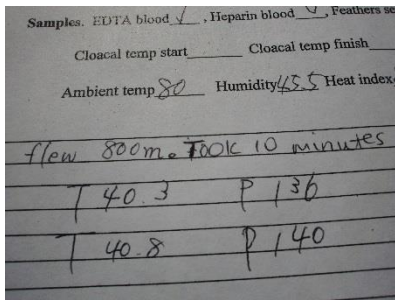 Samples. EDTA blood ✓, Heparin blood ✓, Feathers se
Cloacal temp start______ Cloacal temp finish
Ambient temp 80 Humidity 45.5 Heat index
flew 800m. Took 10 minutes
T 40.3 P 136
T 40.8 P 140